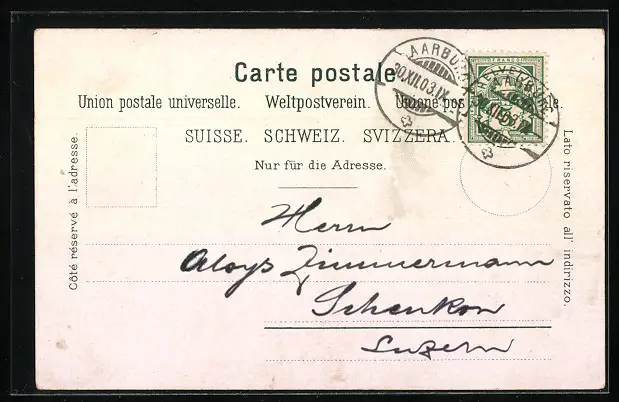 Carte postale.
Union postale universelle. Weltpostverein. Unione postale
SUISSE. SCHWEIZ. SVIZZERA.
Nur für die Adresse.
Côté réservé à l'adresse.
Lato riservato all' indirizzo.
AARBURG
30.XII.03.IX
HELVETIA
AARBURG
30.XII.03.IX
Herrn
Aloys Zimmermann
Schenkon
Luzern